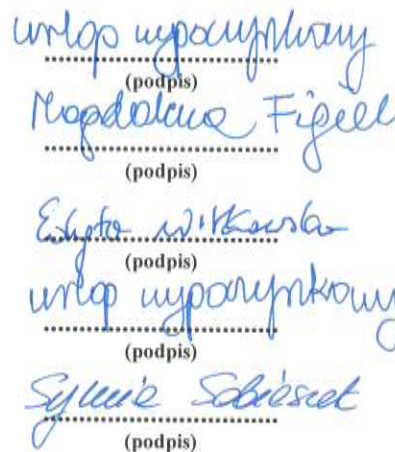 urlop wypoczynkowy
(podpis)
Magdalena Figiel
(podpis)
Edyta Witkowska
(podpis)
urlop wypoczynkowy
(podpis)
Sylwia Sobieszek
(podpis)